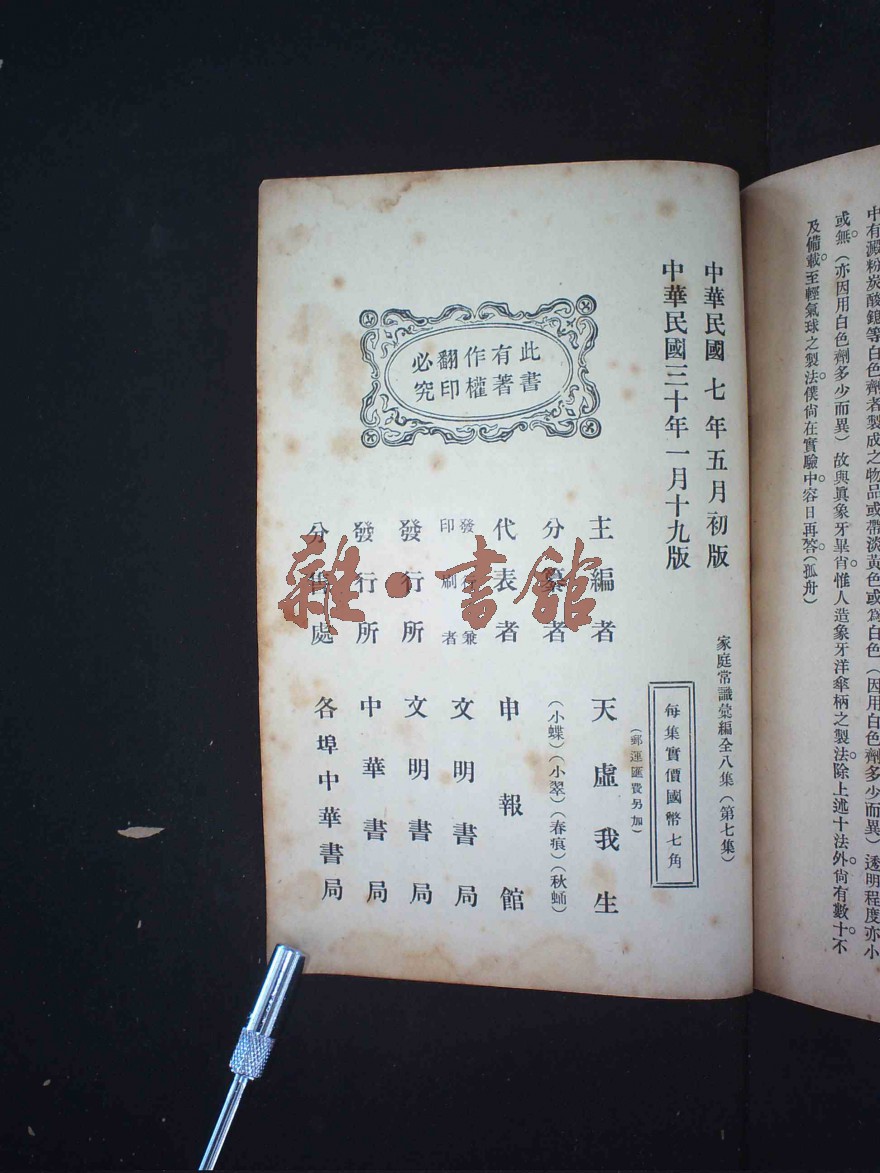 中有澱粉炭酸鎂等白色劑者製成之物品或帶淡黃色或爲白色（因用白色劑多少而異）透明程度亦小
或無。（亦因用白色劑多少而異）故與眞象牙畢肖。惟人造象牙洋傘柄之製法。除上述十法外。尙有數十。不
及備載。至輕氣球之製法。僕尙在實驗中。容日再答。（孤舟）
中華民國七年五月初版
中華民國三十年一月十九版
家庭常識彙編全八集（第七集）
每集實價國幣七角
（郵運匯費另加）
此書有著作權翻印必究
主編者 天虛我生
分纂者 （小蝶）（小翠）（春痕）（秋蛹）
代表者 申報館
發行兼印刷者 文明書局
發行所 文明書局
發行所 中華書局
分售處 各埠中華書局
雜·書館